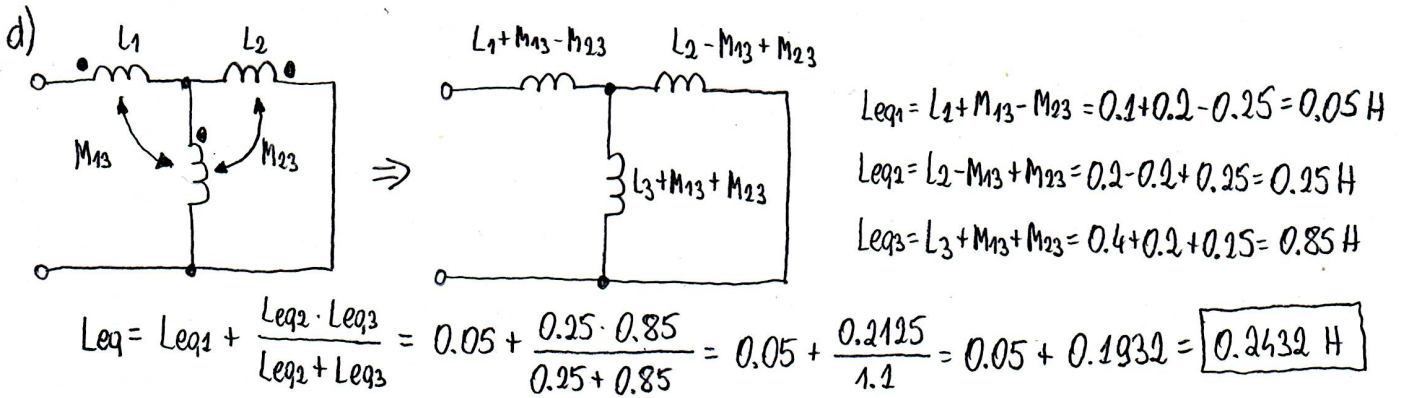 d)
L1 L2
M13 M23
⇒
L1+M13-M23 L2-M13+M23
L3+M13+M23
Leq1 = L1+M13-M23 = 0.1+0.2-0.25 = 0.05 H
Leq2 = L2-M13+M23 = 0.2-0.2+0.25 = 0.25 H
Leq3 = L3+M13+M23 = 0.4+0.2+0.25 = 0.85 H
Leq = Leq1 + (Leq2 · Leq3)/(Leq2 + Leq3) = 0.05 + (0.25 · 0.85)/(0.25 + 0.85) = 0.05 + 0.2125/1.1 = 0.05 + 0.1932 = 0.2432 H